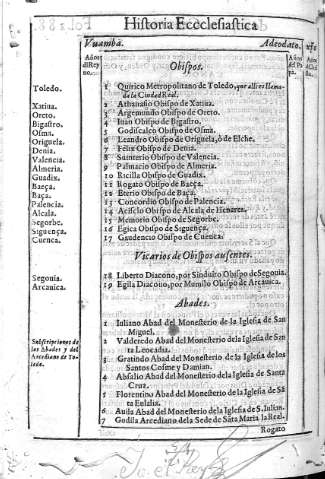 Historia Ecclesiastica
Vuamba. Adeodato.
Años
del Rey
no.
Años
del Pa
pa.
Obispos.
Toledo. 1 Quirico Metropolitano de Toledo, que alli se llama
de la Ciudad Real.
Xatiua. 2 Athanasio Obispo de Xatiua.
Oreto. 3 Argemundo Obispo de Oreto.
Bigastro. 4 Iuan Obispo de Bigastro.
Osma. 5 Godiscalco Obispo de Osma.
Origuela. 6 Leandro Obispo de Origuela, ò de Elche.
Denia. 7 Felix Obispo de Denia.
Valencia. 8 Suinterio Obispo de Valencia.
Almeria. 9 Palmacio Obispo de Almeria.
Guadix. 10 Ricilla Obispo de Guadix.
Baeça. 11 Rogato Obispo de Baeça.
Baça. 12 Eterio Obispo de Baça.
Palencia. 13 Concordio Obispo de Palencia.
Alcala. 14 Acisclo Obispo de Alcala de Henares.
Segorbe. 15 Memorio Obispo de Segorbe.
Siguença. 16 Egica Obispo de Siguença.
Cuenca. 17 Gaudencio Obispo de Cuenca.
Vicarios de Obispos ausentes.
Segouia. 18 Liberto Diacono, por Sinduito Obispo de Segouia.
Arcanica. 19 Egila Diacono, por Mumulo Obispo de Arcanica.
Abades.
Subscripciones de
los Abades y del
Arcediano de To-
ledo.
1 Iuliano Abad del Monesterio de la Iglesia de San
Miguel.
2 Valderedo Abad del Monesterio de la Iglesia de San
ta Leocadia.
3 Gratindo Abad del Monesterio de la Iglesia de los
Santos Cosme y Damian.
4 Absalio Abad del Monesterio de la Iglesia de Santa
Cruz.
5 Florentino Abad del Monesterio de la Iglesia de Sã
ta Eulalia.
6 Auila Abad del Monesterio de la Iglesia de S. Iulian.
7 Godila Arcediano de la Sede de Sãta Maria la Real.
Rogato